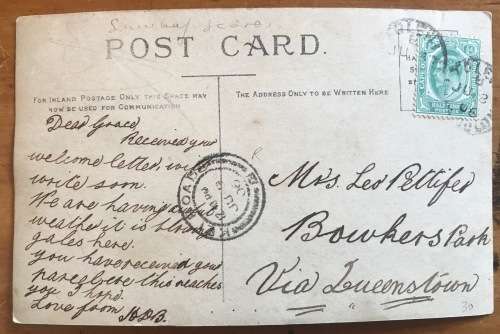 POST CARD.
FOR INLAND POSTAGE ONLY THIS SPACE MAY
NOW BE USED FOR COMMUNICATION
THE ADDRESS ONLY TO BE WRITTEN HERE
Dear Grace
Received your
welcome letter
write soon.
We are having
weather it is blowing
gales here.
you have received your
here this reaches
you I hope.
Love from
Mrs. Leo Pettifer
Bowkers Park
Via Queenstown
30